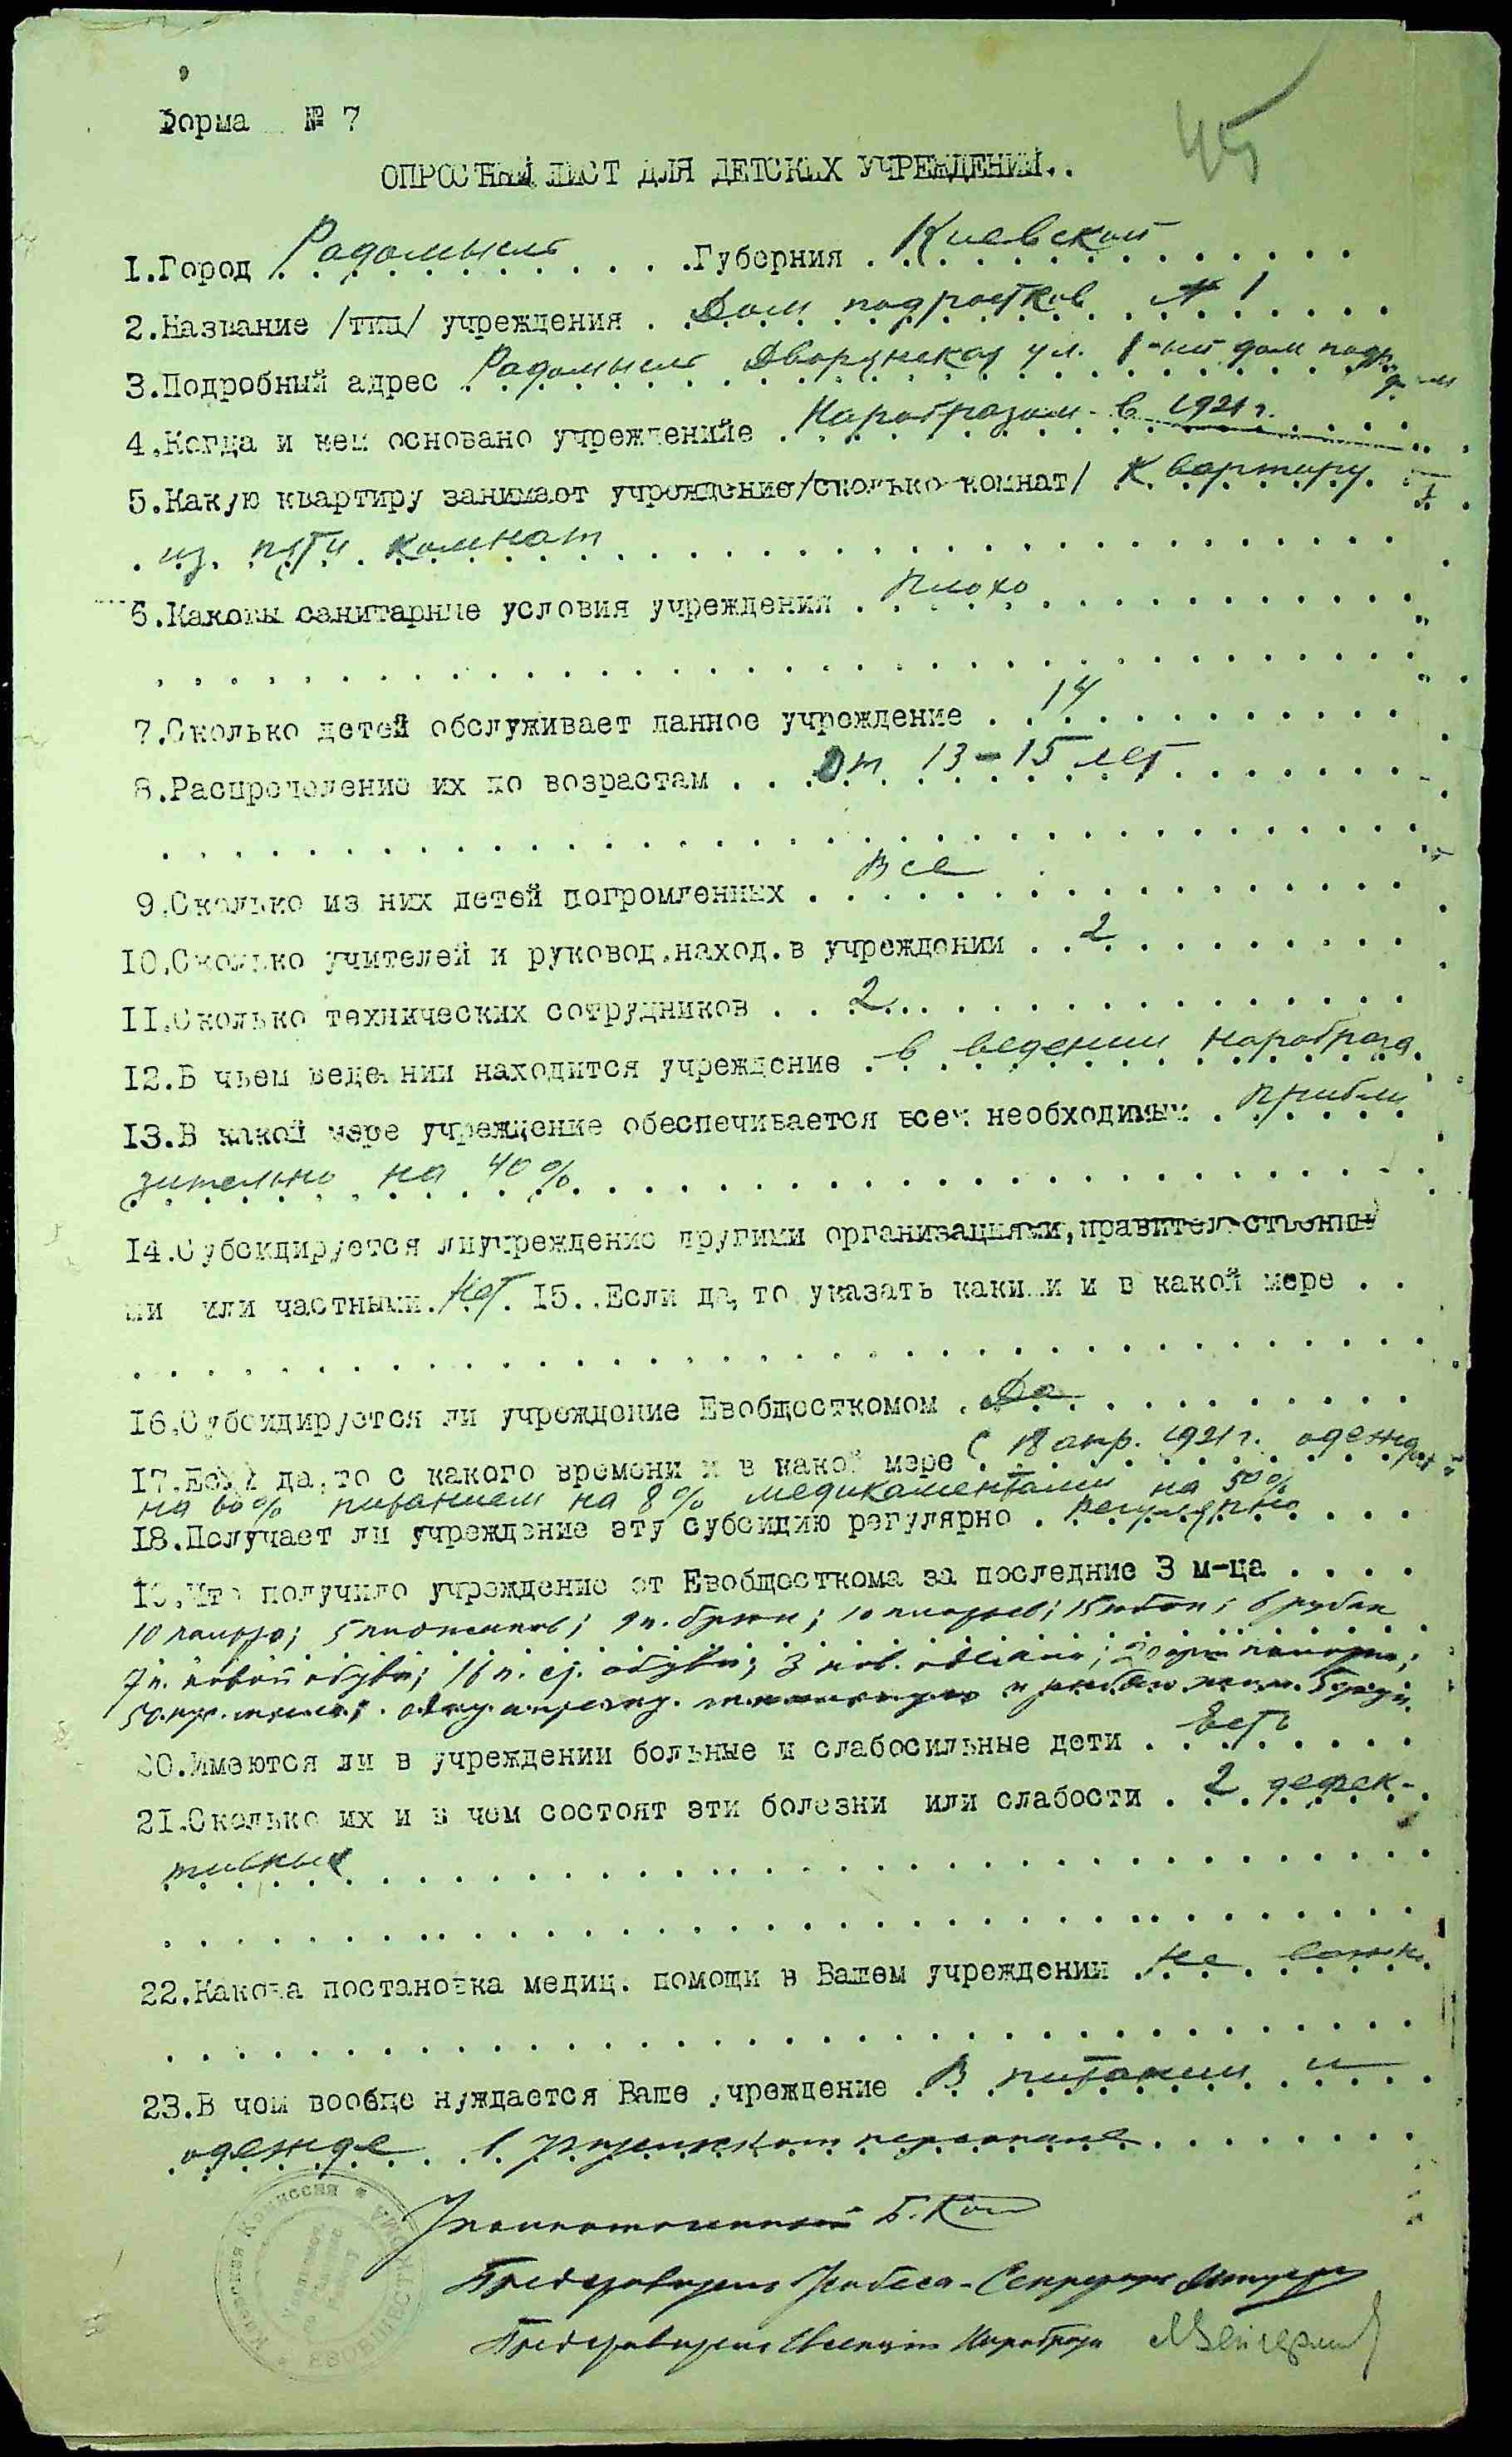 45
Форма № 7
ОПРОСНЫЙ ЛИСТ ДЛЯ ДЕТСКИХ УЧРЕЖДЕНИЙ..
1.Город Радомысль . . .Губерния . Киевской
2.Название /тип/ учреждения . Дом подростков № 1
3.Подробный адрес . Радомысль Дворянская ул. 1-ый дом подр.
4.Когда и кем основано учреждениие . Наробразом в 1921 г.
5.Какую квартиру занимает учреждение/сколько комнат/ Квартиру
из пяти комнат
6.Каковы санитарные условия учреждения . плохо
7.Сколько детей обслуживает данное учреждение . . 14
8.Распределение их по возрастам . . От 13-15 лет
9.Сколько из них детей погромленных . Все
10.Сколько учителей и руковод.наход.в учреждении . . 2
11.Сколько технических сотрудников . . 2
12.В чьем ведении находится учреждение . в ведении наробраза.
13.В какой мере учреждение обеспечивается всем необходимым . прибли
зительно на 40%
14.Субсидируется лиучреждение другими организациями,правительственны
ми или частными. Нет. 15. .Если да, то указать какими и в какой мере . .
16.Субсидируется ли учреждение Евобщесткомом . Да
17.Если да,то с какого времени и в какой мере С 18 апр. 1921 г. одеждой
на 60% питанием на 8% медикаментами на 50%
18.Получает ли учреждение эту субсидию регулярно . регулярно
19.Что получило учреждение от Евобщесткома за последние 3 м-ца . . . .
10 5 9 п. брюк; 10 15 юбок; 6 рубах
7 п. новой обуви; 16 п. обуви; 3 нов. одеяла; 20
50
20.Имеются ли в учреждении больные и слабосильные дети . Есть
21.Сколько их и в чем состоят эти болезни или слабости . 2 дефек-
тивных
22.Какова постановка медиц. помощи в Вашем учреждении . Не
23.В чем вообще нуждается Ваше учреждение . В питании и
одежде персонале
Уполномоченный Б. Кон
Председатель Секретарь
Председатель Наробраза
Киевская Комиссия * ЕВОБЩЕСТКОМА *